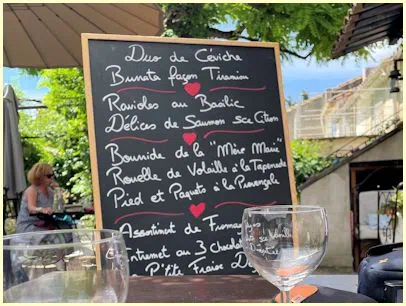 Duo de Céviche
Burrata façon Tiramisu
Ravioles au Basilic
Délices de Saumon sce Citron
Bourride de la "Mère Marie"
Rouelle de Volaille à la Tapenade
Pied et Paquets à la Provençale
Assortiment de Fromages
Entremet au 3 chocolat
P'tite Fraise De